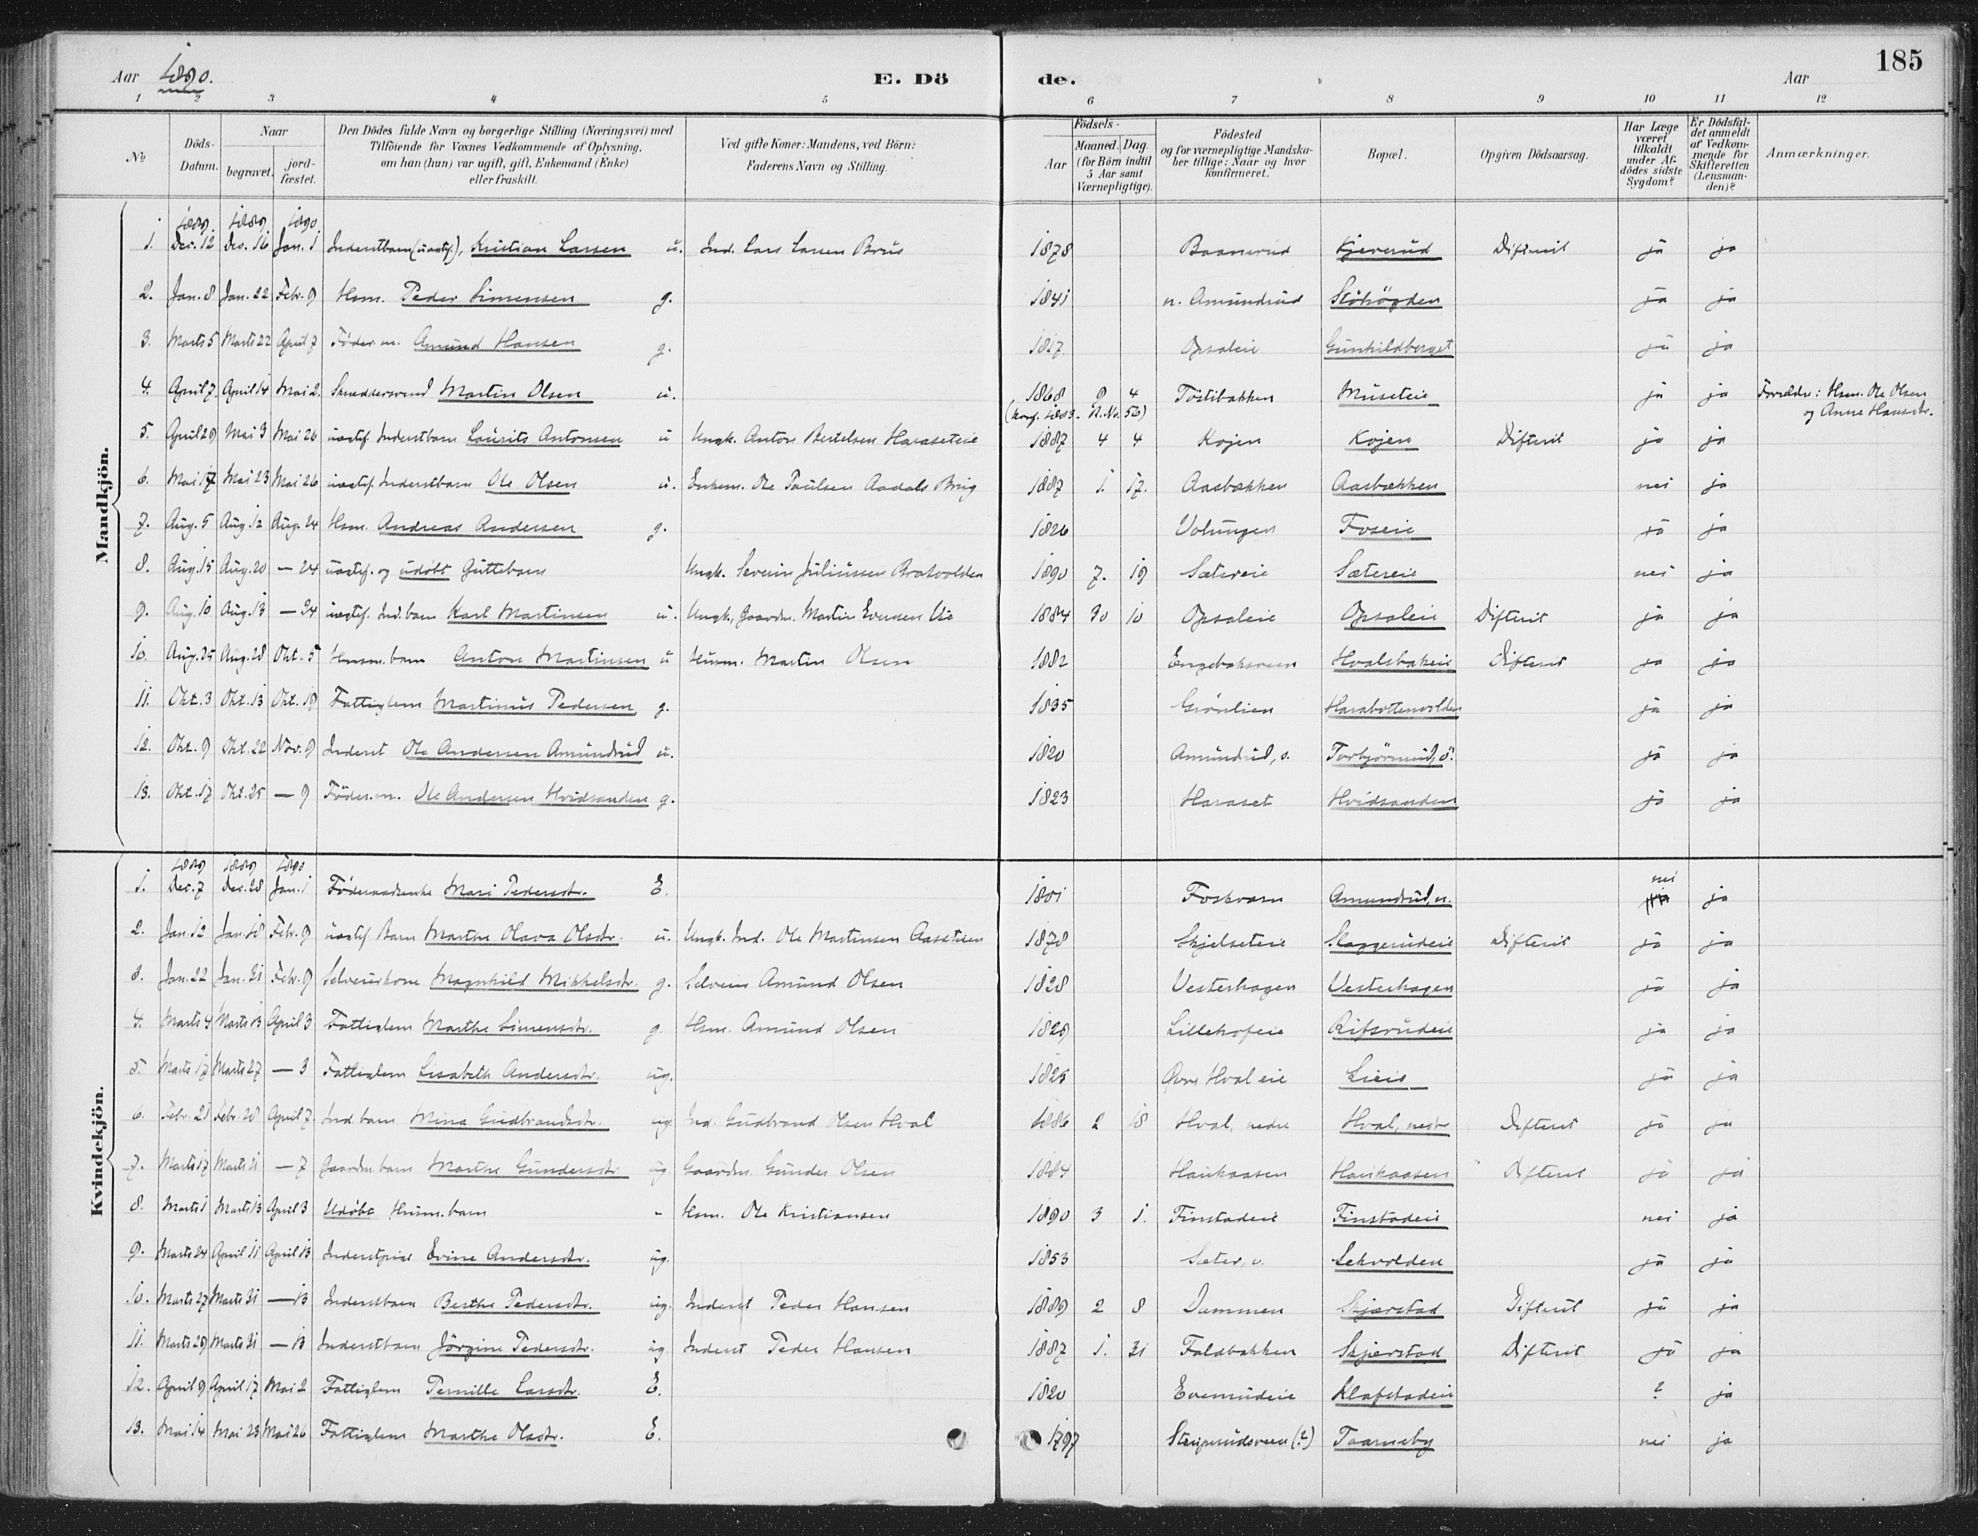 Aar 1890. E. Dö de. Aar 185
1 2 3 4 5 6 7 8 9 10 11 12
No
Döds-Datum.
Naar begravet. jordfæstet.
Den Dödes fulde Navn og borgerlige Stilling (Næringsvei) med Tilföiende for Voxnes Vedkommende af Oplysning, om han (hun) var ugift, gift, Enkemand (Enke) eller fraskilt.
Ved gifte Koner: Mandens, ved Börn: Faderens Navn og Stilling.
Födsels-
Aar Maaned. Dag (for Börn indtil 5 Aar samt Værnepligtige).
Födested og for værnepligtige Mandskaber tillige: Naar og hvor konfirmeret.
Bopæl.
Opgiven Dödsaarsag.
Har Læge været tilkaldt under Afdödes sidste Sygdom?
Er Dödsfaldet anmeldt af Vedkommende for Skifteretten (Lensmanden)?
Anmærkninger.
Mandkjön.
1889. 1889. 1890
1. Dec. 12 Dec. 16 Jan. 1 Inderstbarn (uægtef.), Kristian Larsen u. Ind. Lars Larsen Brus 1878 Baanerud Kjeverud Difterit ja ja
2. Jan. 8 Jan. 22 Febr. 9 Hsm. Peder Simensen g. 1841 n. Amundrud ja ja
3. Marts 5 Marts 22 April 7 Föder.m. Amund Hansen g. 1817 Opsaleie Gunhildberget ja ja
4. April 7. April 14 Mai 2. Smeddersvend Martin Olsen u. 1868 9 4 Tostibakken Museteie ja ja Forældre: Hsm. Ole Olsen
(konf. 1883. N. No. 56) og Anne Hansdtr.
5. April 29 Mai 3 Mai 26 uægtef. Inderstbarn Laurits Antonsen u Ungk. Anton Bertelsen Haraseteie 1887 4 4 Kojen Kojen Difterit ja ja
6. Mai 17 Mai 23 Mai 26 uægtef. Inderstbarn Ole Olsen u. Enkem. Ole Paulsen Aadals Brug 1887 1. 17. Aasbakken Aasbakken nei ja
7. Aug. 5 Aug. 12 Aug. 24 Hsm. Andreas Andersen g. 1826 Volungen Foseie ja ja
8. Aug. 15 Aug. 20 — 24 uægtef. og udöbt Guttebarn Ungk. Severin Juliussen Bratvolden 1890 7. 19 Sætereie Sætereie nei ja
9. Aug. 10 Aug. 13 — 24 uægtef. Ind. barn Karl Martinsen u. Ungk., Gaardm. Martin Evensen Lie 1884 30 10 Opsaleie Opsaleie Difterit ja ja
10. Aug. 25 Aug. 28 Okt. 5 Husm. barn Anton Martinsen u Husm. Martin Olsen 1882 Hvalsbakeie Difterit ja ja
11. Okt. 3 Okt. 13 Okt. 19 Fattiglem Martinus Pedersen g. 1835 Grönlien Harabottenvolden ja ja
12. Okt. 9 Okt. 22 Nov. 9 Inderst Ole Andersen Amundrud u. 1820 Amundrud, s. Torbjörnrud, ö. ja ja
13. Okt. 17 Okt. 25 — 9 Föder.m. Ole Andersen Hvidsanden g. 1823 Haraset Hvidsanden ja ja
Kvindekjön.
1889 1889 1890
1. Dec. 7 Dec. 28 Jan. 1 Föderaadsenke Mari Pedersdtr. E. 1801 Foskvarn Amundrud, n. nei ja
2. Jan. 12 Jan. 18 Febr. 9 uægtef. Barn Marthe Olava Olsdtr. u. Ungk. Ind. Ole Martinsen Aaseteien 1878 Skjelseteie Slaggerudeie Difterit ja ja
3. Jan. 22 Jan. 31 Febr. 9 Selveierkone Magnhild Mikkelsdtr. g. Selveier Amund Olsen 1828 Vesterhagen Vesterhagen ja ja
4. Marts 4 Marts 13 April 3 Fattiglem Marthe Simensdtr. g. Hsm. Amund Olsen 1829 Lillehofeie Rifsrudeie ja ja
5. Marts 17 Marts 27 — 3 Fattiglem Lisabeth Andersdtr. ug. 1825 Övre Hval eie Lieie ja ja
6. Febr. 21 Febr. 28 April 7. Ind barn Mina Gudbrandsdtr. ug. Ind. Gudbrand Olsen Hval 1886 2 18 Hval, nedre Hval, nedre Difterit ja ja
7. Marts 17 Marts 21 — 7 Gaardm. barn Marthe Gundersdtr ug. Gaardm. Gunder Olsen 1884 Haukaasen Haukaasen Difterit ja ja
8. Marts 1 Marts 13 April 3 Udöbt Husm. barn - Hsm. Ole Kristiansen 1890 3 1. Finstadeie Finstadeie nei ja
9. Marts 24 April 11 April 13 Inderstpige Evine Andersdtr. ug. 1853 Sæter, v. Sekvolden ja ja
10. Marts 27 Marts 31 — 13 Inderstbarn Berthe Pedersdtr. ug. Inderst Peder Hansen 1889 2 8 Dammen Skjærstad Difterit ja ja
11. Marts 29 Marts 31 — 13 Inderstbarn Jörgine Pedersdtr. ug. Inderst Peder Hansen 1887 1. 31 Faldbakken Skjærstad Difterit ja ja
12. April 9 April 17 Mai 2 Fattiglem Pernille Larsdtr. E. 1820 Evenrudeie Klafstadeie ? ja
13. Mai 14 Mai 23 Mai 26 Fattiglem Marthe Olsdtr. E. 1797 Taarneby nei ja